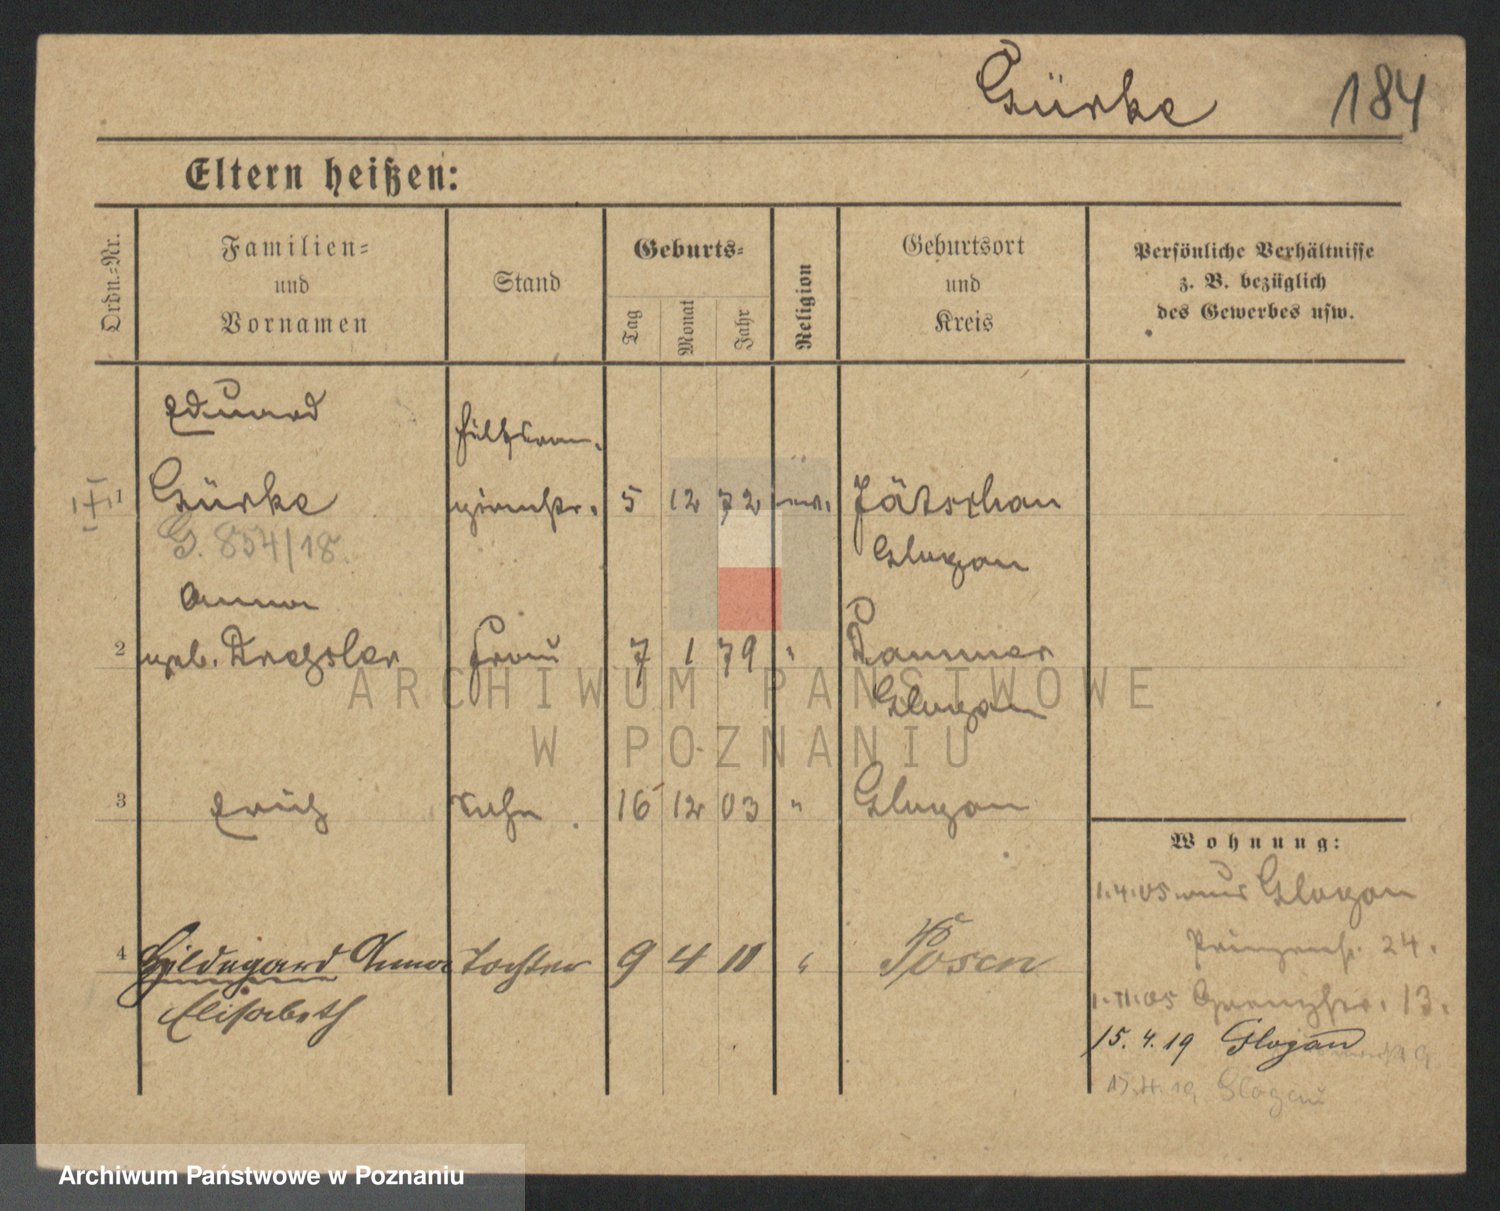 Gürke 184
Eltern heißen:
Ordn.-Nr.
Familien-
und
Vornamen
Stand
Geburts-
Tag
Monat
Jahr
Religion
Geburtsort
und
Kreis
Persönliche Verhältnisse
z. B. bezüglich
des Gewerbes usw.
Eduard
Hilfsran-
1 Gürke giermstr. 5 12 72 ev. Jätschau
G. 854/18. Glogau
Anna
2 geb. Drechsler Frau 7 1 79 " Dammer
Glogau
ARCHIWUM PAŃSTWOWE
W POZNANIU
3 Erich Sohn 16 12 03 " Glogau
Wohnung:
1.4.05 aus Glogau
Prinzenstr. 24.
4 Hildegard Anna Tochter 9 4 11 " Posen
Elisabeth
1.11.05 13.
15.4.19 Glogau
15.4.19 Glogau
Archiwum Państwowe w Poznaniu